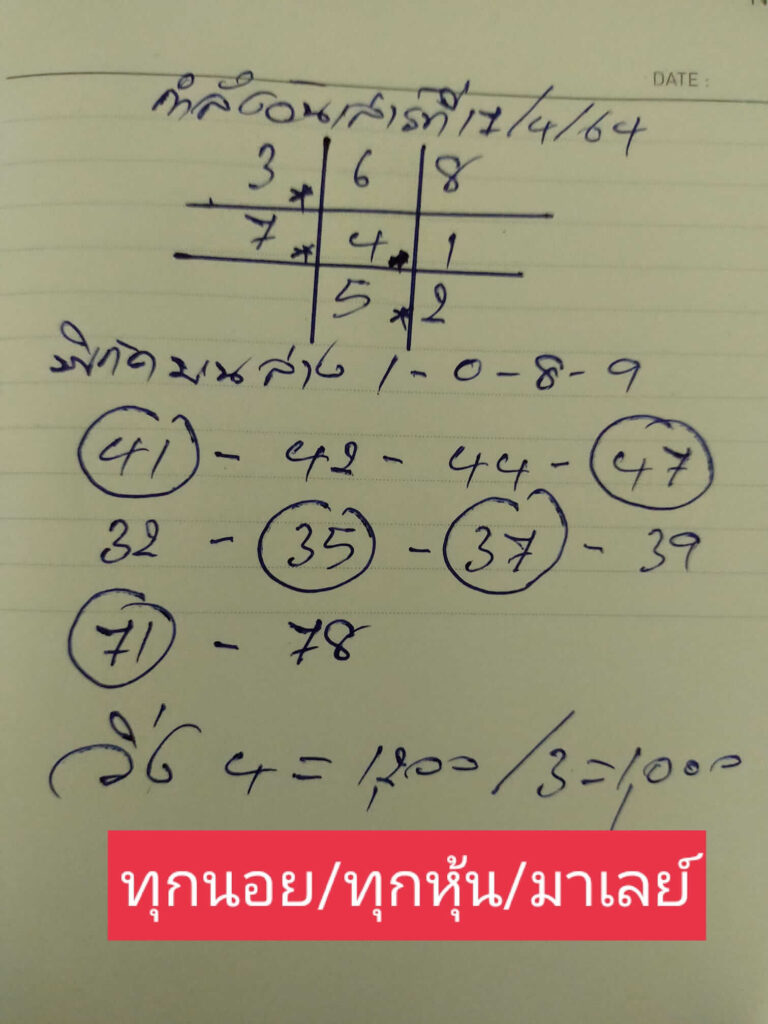 DATE :
กำลังวันเสาร์ที่ 17/4/64
3 * 6 8
7 * 4 . 1
5 * 2
พิกัด บน ล่าง 1 - 0 - 8 - 9
41 - 42 - 44 - 47
32 - 35 - 37 - 39
71 - 78
วิ่ง 4 = 1,200 / 3 = 1,000
ทุกนอย/ทุกหุ้น/มาเลย์